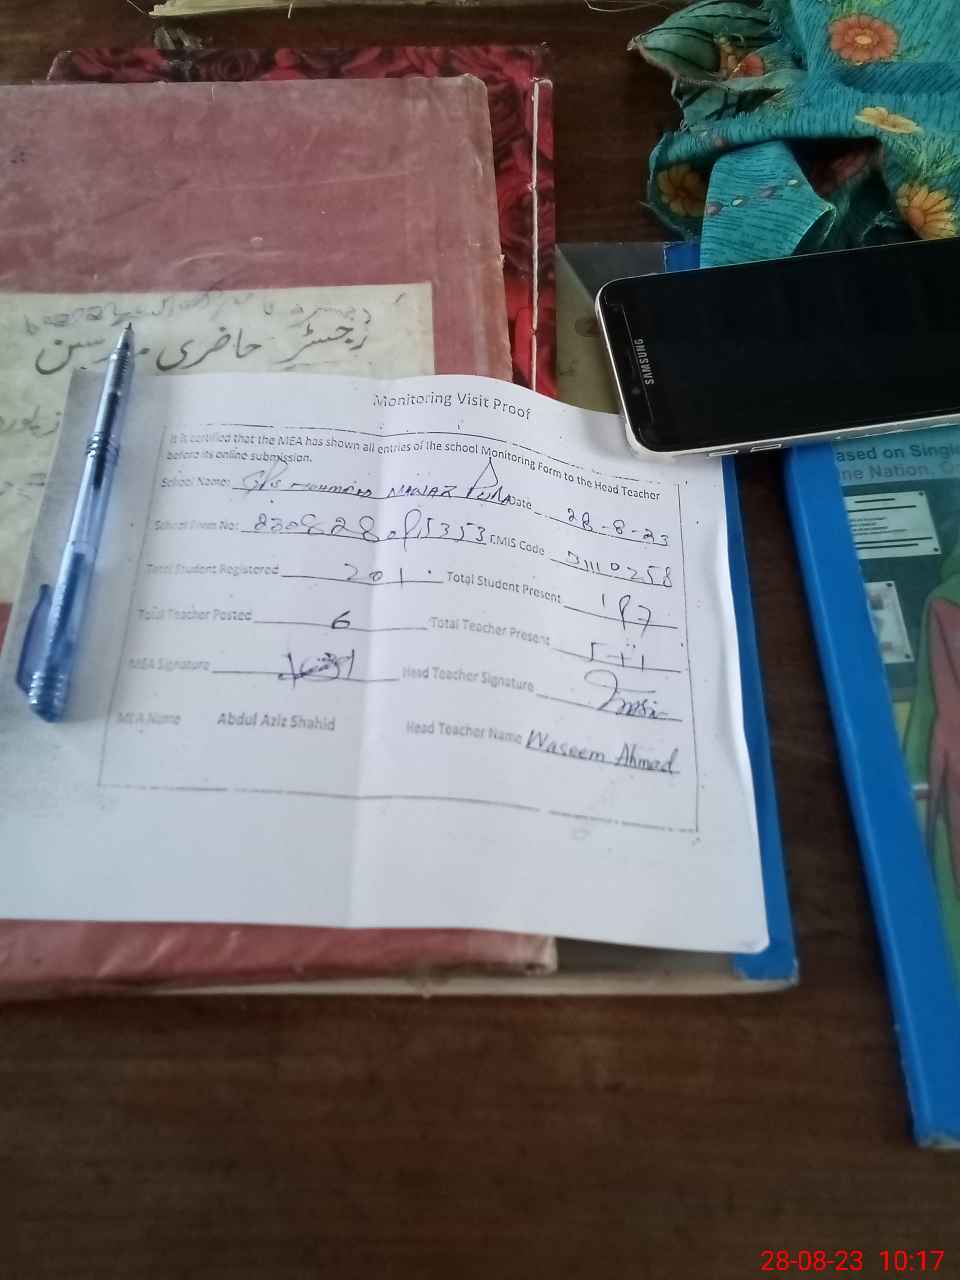 رجسٹر حاضری مدرسین
SAMSUNG
ased on Singl
me Nation, O
Monitoring Visit Proof
It is certified that the MEA has shown all entries of the school Monitoring Form to the Head Teacher
before its online submission.
School Name: GPS MEHMMAD NAWAZ Date 28-8-23
School Form No: EMIS Code 31110258
Total Student Registered 201 Total Student Present 197
Total Teacher Posted 6 Total Teacher Present 5+1
MEA Signature Head Teacher Signature
MEA Name Abdul Aziz Shahid Head Teacher Name Waseem Ahmed
28-08-23 10:17